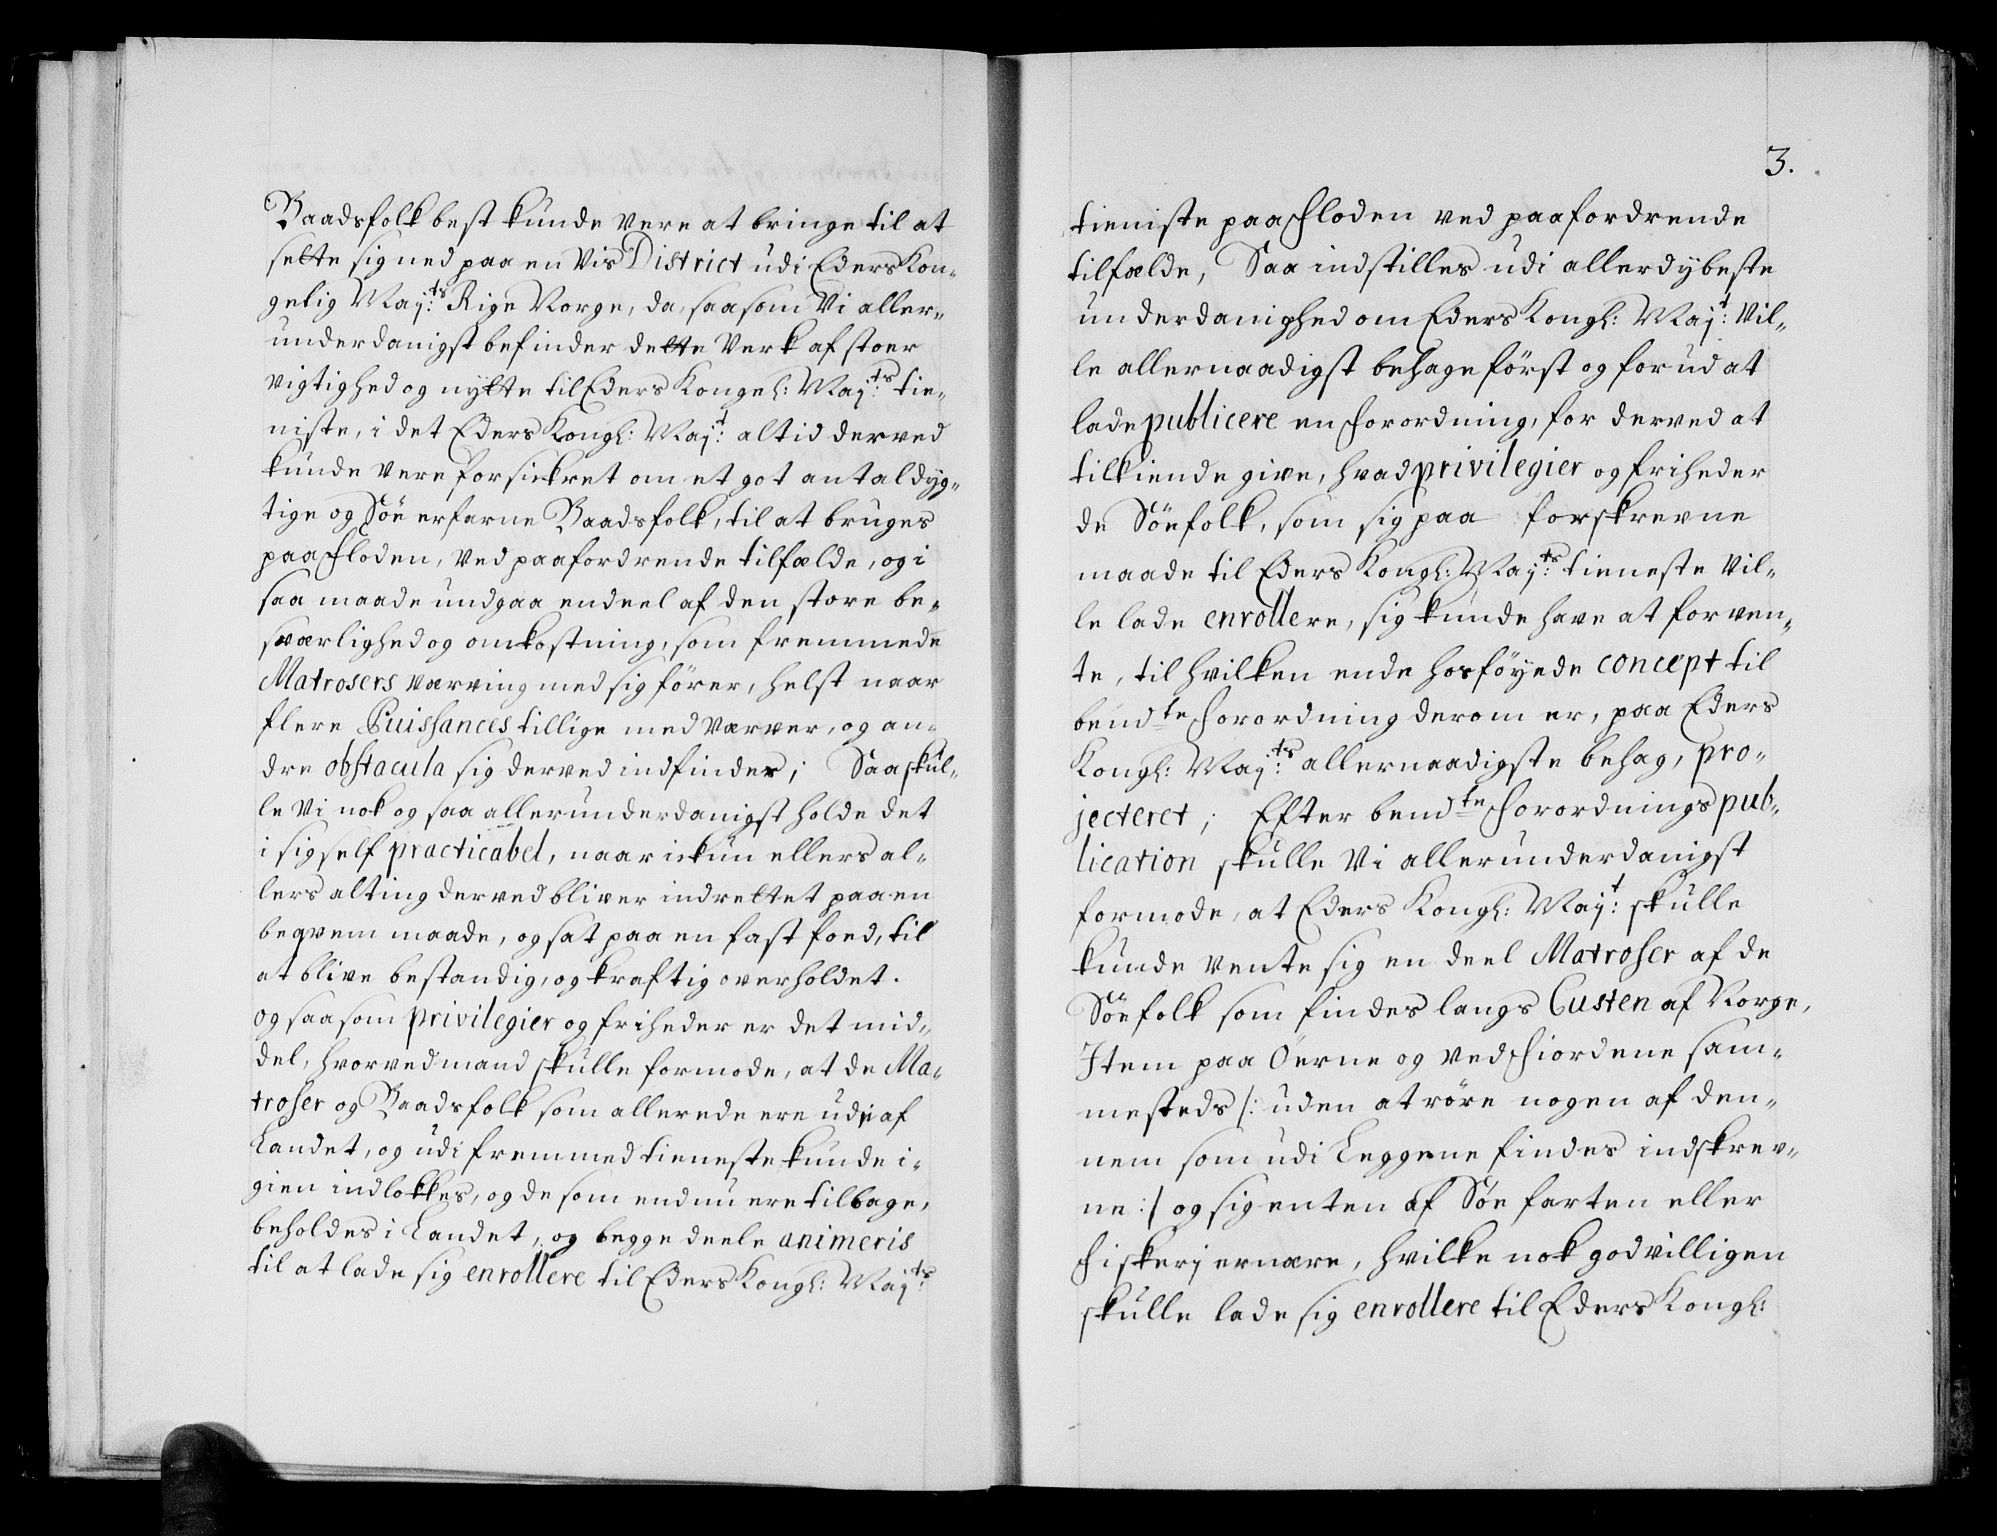 Baadsfolk best kunde vere at bringe til at
sette sig ned paa en vis District udi Eders Kon-
gelig May:ts Rige Norge, da, saasom Vi aller-
underdanigst befinder dette Verk af stoer
vigtighed og nytte til Eders Kongel: May:ts tie-
niste, i det Eders Kongl: May:t altid derved
kunde vere forsickret om et got antal dyg-
tige og Söe erfarne Baadsfolk, til at bruges
paa Floden, ved paafordrende tilfælde, og i
saa maade undgaa endeel af den store be-
sværlighed og omkostning, som fremmede
Matrosers værving med sig förer, helst naar
flere Puissances tillige med værver, og an-
dre obstacula sig derved indfinder; Saa skul-
le Vi nok og saa allerunderdanigst holde det
i sig self practicabel, naar ickun ellers al-
lers alting derved bliver indrettet paa en
beqvem maade, og sat paa en fast foed, til
at blive bestandig, og kraftig overholdet.
og saasom privilegier og friheder er det mid-
del, hvorved mand skulle formode, at de Ma-
troser og Baadsfolk som allerede ere udi af
Landet, og udi fremmed tieneste kunde i-
gien indlokkes, og de som endnu ere tilbage,
beholdes i Landet, og begge deele animeris
til at lade sig enrollere til Eders Kongl: May:ts
3.
tieniste paa Floden ved paafordrende
tilfælde, Saa indstilles udi allerdybeste
underdanighed om Eders Kongl: May:t vil-
le allernaadigst behage först og forud at
lade publicere en Forordning, for derved at
tilkiende give, hvad privilegier og friheder
de Söefolk, som sig paa forskrevne
maade til Eders Kongl: May:ts tieneste vil-
le lade enrollere, sig kunde have at forven-
te, til hvilken ende hosföyede concept til
bemdte Forordning derom er, paa Eders
Kongl: May:ts allernaadigste behag, pro-
jecteret; Efter bemdte Forordnings pub-
lication skulle Vi allerunderdanigst
formode, at Eders Kongl: May:t skulle
kunde vente sig en deel Matroser af de
Söefolk som findes langs Custen af Norge,
Item paa Öerne og ved Fiordene sam-
mesteds /: uden at röre nogen af den-
nem som udi Leggene findes indskrev-
ne :/ og sig enten af Söe farten eller
Fiskerj ernære, hvilke nok godvilligen
skulle lade sig enrollere til Eders Kongl: